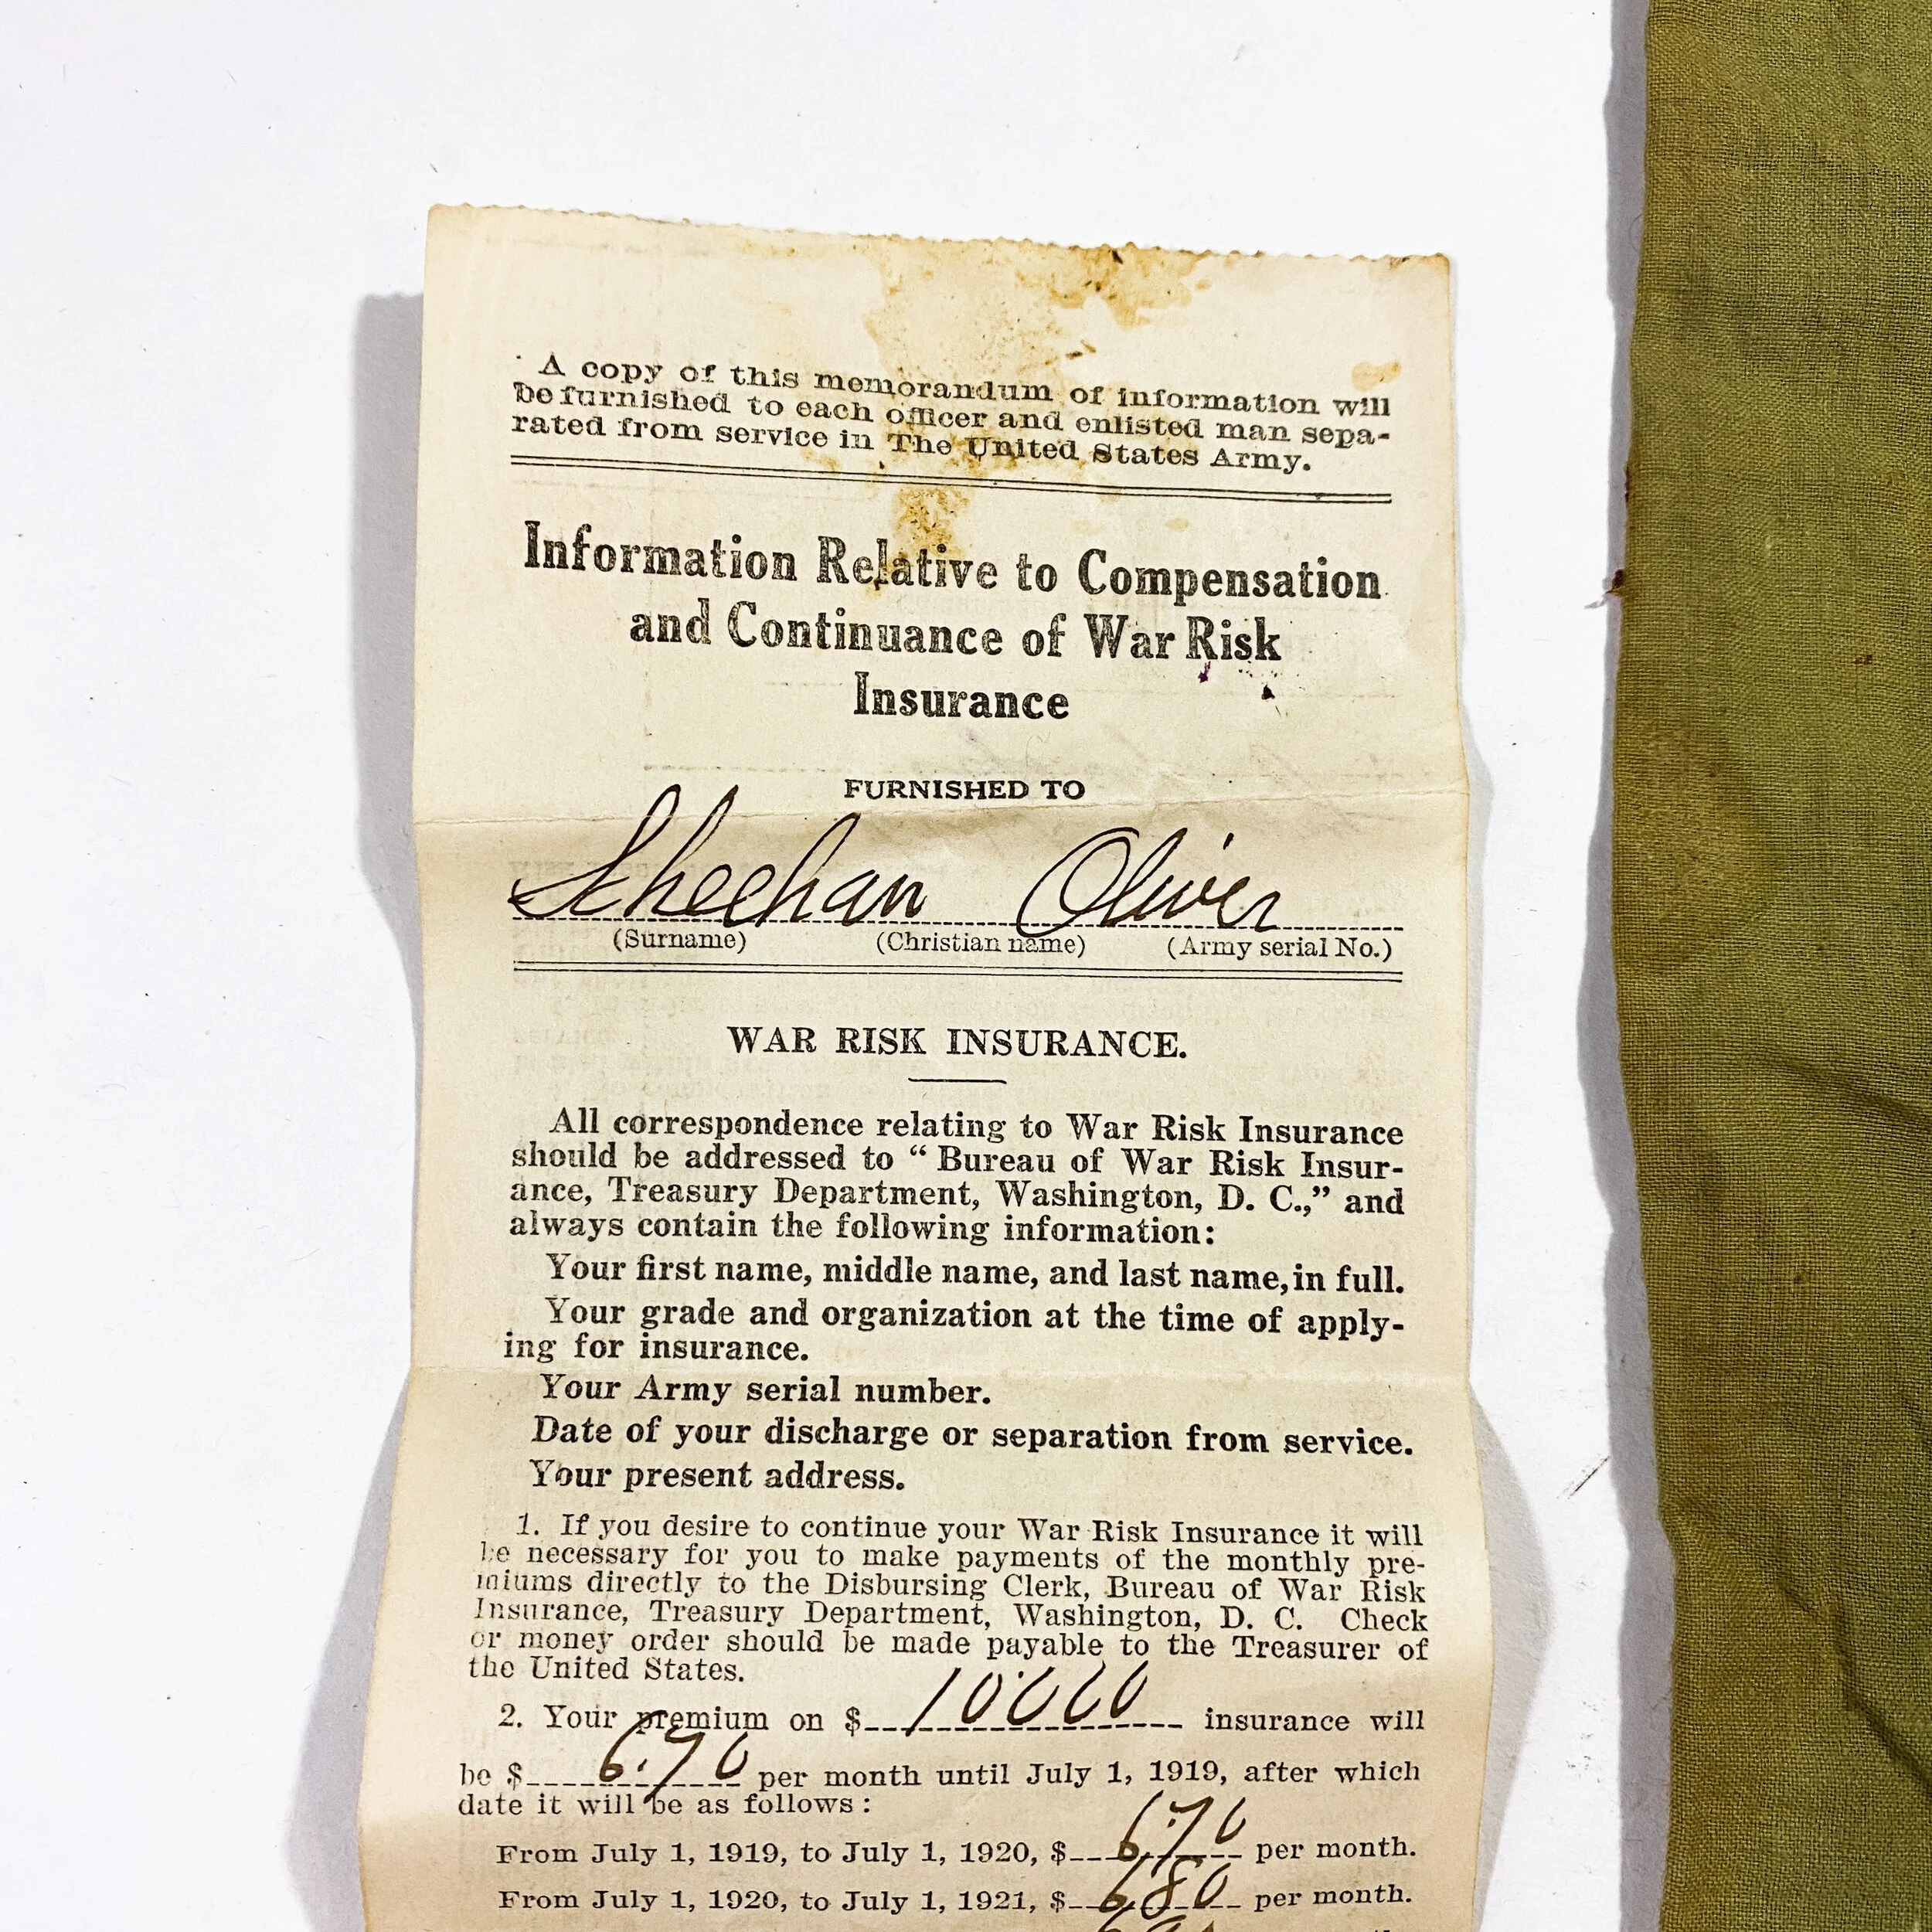 A copy of this memorandum of information will
be furnished to each officer and enlisted man sepa-
rated from service in The United States Army.
Information Relative to Compensation
and Continuance of War Risk
Insurance
FURNISHED TO
Scheehan Oliver
(Surname) (Christian name) (Army serial No.)
WAR RISK INSURANCE.
All correspondence relating to War Risk Insurance
should be addressed to “ Bureau of War Risk Insur-
ance, Treasury Department, Washington, D. C.,” and
always contain the following information:
Your first name, middle name, and last name, in full.
Your grade and organization at the time of apply-
ing for insurance.
Your Army serial number.
Date of your discharge or separation from service.
Your present address.
1. If you desire to continue your War Risk Insurance it will
be necessary for you to make payments of the monthly pre-
miums directly to the Disbursing Clerk, Bureau of War Risk
Insurance, Treasury Department, Washington, D. C. Check
or money order should be made payable to the Treasurer of
the United States.
2. Your premium on $ 10000 insurance will
be $ 6.70 per month until July 1, 1919, after which
date it will be as follows:
From July 1, 1919, to July 1, 1920, $ 6.70 per month.
From July 1, 1920, to July 1, 1921, $ 6.80 per month.